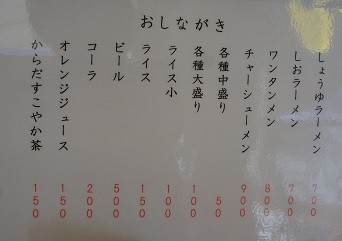 おしながき
しょうゆラーメン 700
しおラーメン 700
ワンタンメン 800
チャーシューメン 900
各種中盛り 50
各種大盛り 100
ライス小 100
ライス 150
ビール 550
コーラ 200
オレンジジュース 150
からだすこやか茶 150